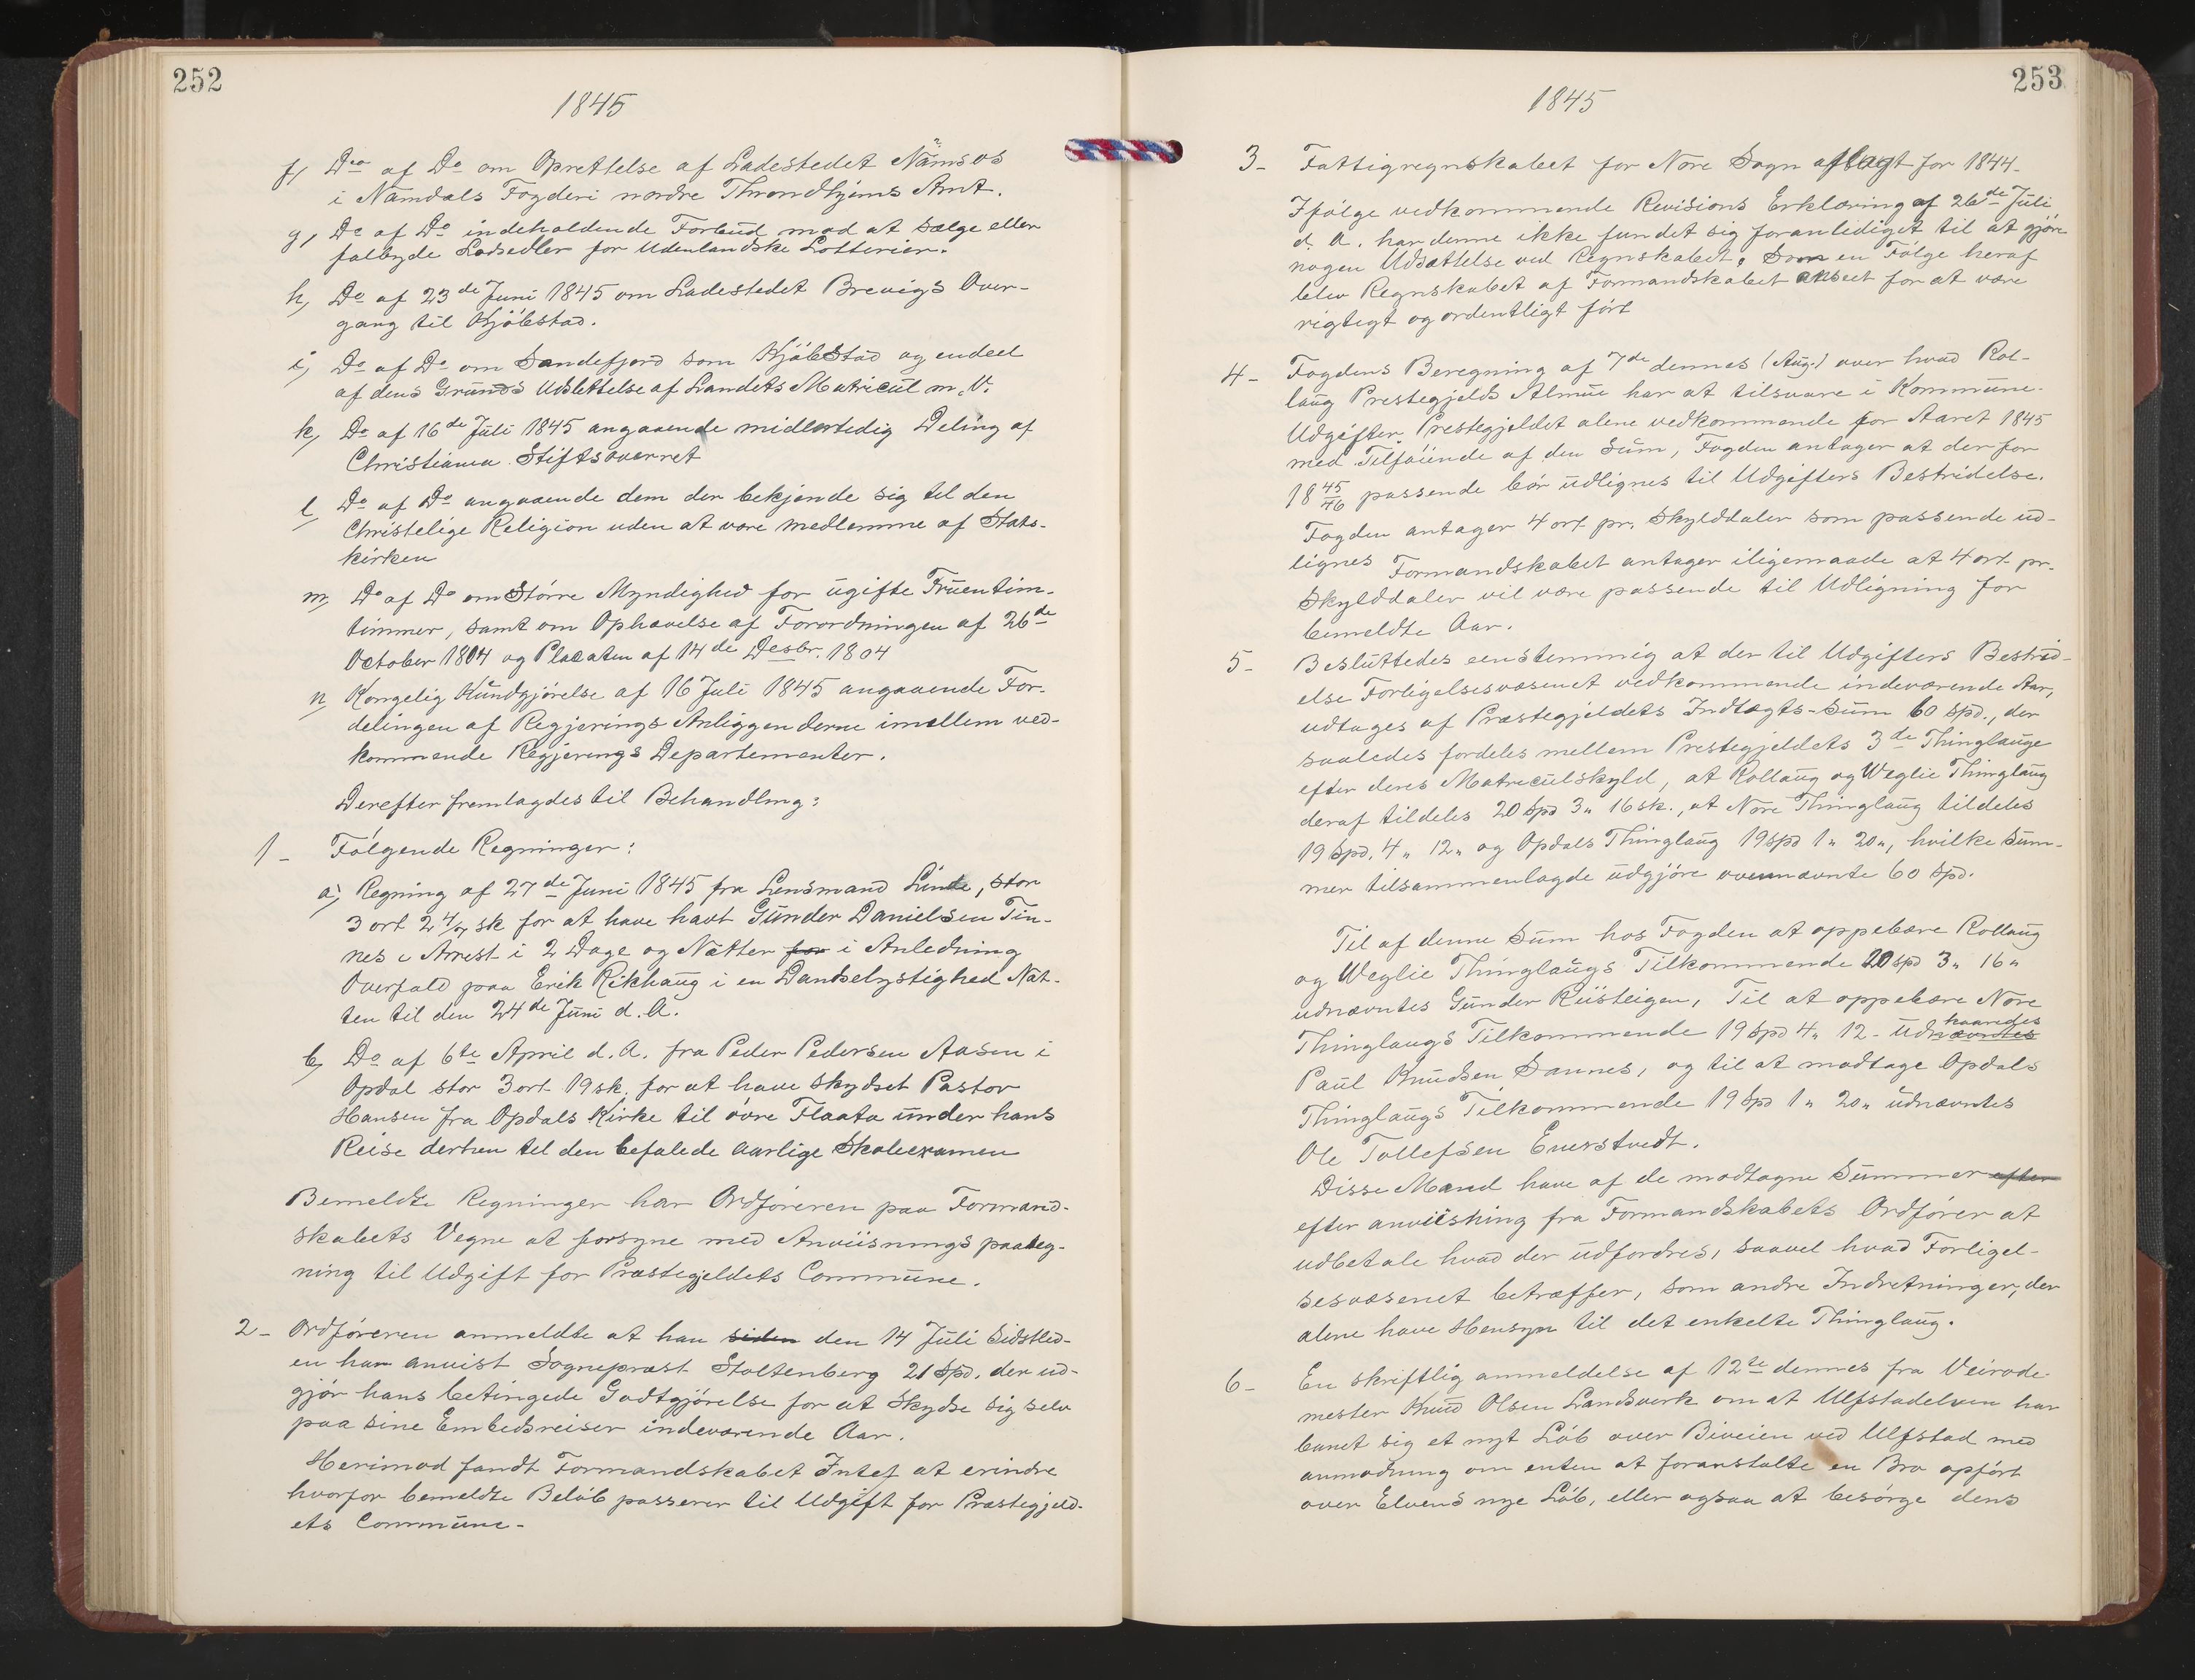 252
1845
f, Do af Do om Oprettelse af Ladestedet Namsos
i Namdals Fogderi nordre Throndhjems Amt.
g, Do af Do indeholdende Forbud mod at sælge eller
falbyde Lodsedler for Udenlandske Lotterier.
h, Do af 23de Juni 1845 om Ladestedet Brevigs Over-
gang til Kjöbstad.
i, Do af Do om Sandefjord som Kjöbstad og endeel
af dens Grunds Udslettelse af Landets Matricul m. V.
k, Do af 16de Juli 1845 angaaende midlertidig Deling af
Christiania Stiftsoverret
l, Do af Do angaaende dem der bekjende sig til den
Christelige Religion uden at være medlemme af Stats-
kirken
m, Do af Do om Större Myndighed for ugifte Fruentim-
timmer, samt om Ophævelse af Forordningen af 26de
October 1804 og Placaten af 14de Desbr. 1804
n, Kongelig Kundgjörelse af 16 Juli 1845 angaaende For-
delingen af Regjerings Anliggenderne imellem ved-
kommende Regjerings Departementer.
Derefter fremlagdes til Behandling:
1- Fölgende Regninger:
a, Regning af 27de Juni 1845 fra Lensmand Linde, stor
3 ort 2 4/7 sk for at have havt Gunder Danielsen Tin-
nes i Arrest i 2 Dage og Nætter for i Anledning
Overfald paa Erik Rikhaug i en Dandselystighed Nat-
ten til den 24de Juni d. A.
b, Do af 6te April d. A. fra Peder Pedersen Aasen i
Opdal stor 3 ort 19 sk. for at have skydset Pastor
Hansen fra Opdals Kirke til övre Flaata under hans
Reise derhen til den befalede aarlige Skoleexamen
Bemeldte Regninger har Ordföreren paa Formand-
skabets Vegne at forsyne med Anviisnings paateg-
ning til Udgift for Præstegjeldets Commune.
2- Ordföreren anmeldte at han siden den 14 Juli sidstled-
en har anvist Sognepræst Stoltenberg 21 Spd. der ud-
gjör hans betingede Godtgjörelse for at Skydse sig selv
paa sine Embedsreiser indeværende Aar.
Herimod fandt Formandskabet Intet at erindre
hvorfor bemeldte Belöb passerer til Udgift for Præstegjeld-
ets Commune-
253
1845
3- Fattigregnskabet for Nore Sogn aflagt for 1844-
Ifölge vedkommende Revisions Erklæring af 26de Juli
d. A. har denne ikke fundet sig foranlediget til at gjöre
nogen Udsættelse ved Regnskabet. Som en Fölge heraf
blev Regnskabet af Formandskabet anseet for at være
rigtigt og ordentligt fört
4- Fogdens Beregning af 7de dennes (Aug.) over hvad Rol-
laug Prestegjelds Almue har at tilsvare i Kommune-
Udgifter. Prestegjeldet alene vedkommende for Aaret 1845
med Tilföiende af den Sum, Fogden antager at der for
18 45/46 passende bör udlignes til Udgifters Bestridelse.
Fogden antager 4 ort pr. Skylddaler som passende ud-
lignes Formandskabet antager iligemaade at 4 ort pr.
Skylddaler vil være passende til Udligning for
bemeldte Aar.
5- Besluttedes eenstemmig at der til Udgifters Bestrid-
else Forligelsesvæsenet vedkommende indeværende Aar,
udtages af Præstegjeldets Indtægts-Sum 60 Spd., der
saaledes fordeles mellem Prestegjeldets 3de Thinglauge
efter deres Matriculskyld, at Rollaug og Weglie Thinglaug
deraf tildeles 20 Spd 3„ 16 sk., at Nore Thinglaug tildeles
19 Spd. 4„ 12„ og Opdals Thinglaug 19 Spd 1„ 20„, hvilke Sum-
mer tilsammenlagde udgjöre ovennævnte 60 Spd.
Til af denne Sum hos Fogden at oppebære Rollaug
og Weglie Thinglaugs Tilkommende 20 Spd 3„ 16„
udnævntes Gunder Ruusteigen, Til at oppebære Nore
Thinglaugs Tilkommende 19 Spd 4„ 12- udnævntes kaaredes
Paul Knudsen Sannes, og til at modtage Opdals
Thinglaugs Tilkommende 19 Spd 1„ 20„ udnævntes
Ole Tollefsen Enerstvedt.
Disse Mænd have af de modtagne Summer efter
efter anviisning fra Formandskabets Ordförer at
udbetale hvad der udfordres, saavel hvad Forligel-
sesvæsenet betræffer, som andre Indretninger, der
alene have Hensyn til det enkelte Thinglaug.
6- En skriftlig anmeldelse af 12te dennes fra Veirode-
mester Knud Olsen Landsverk om at Ulfstadelven har
banet sig et nyt Löb over Biveien ved Ulfstad med
anmodning om enten at foranstalte en Bro opfört
over Elvens nye Löb, eller ogsaa at besörge dens